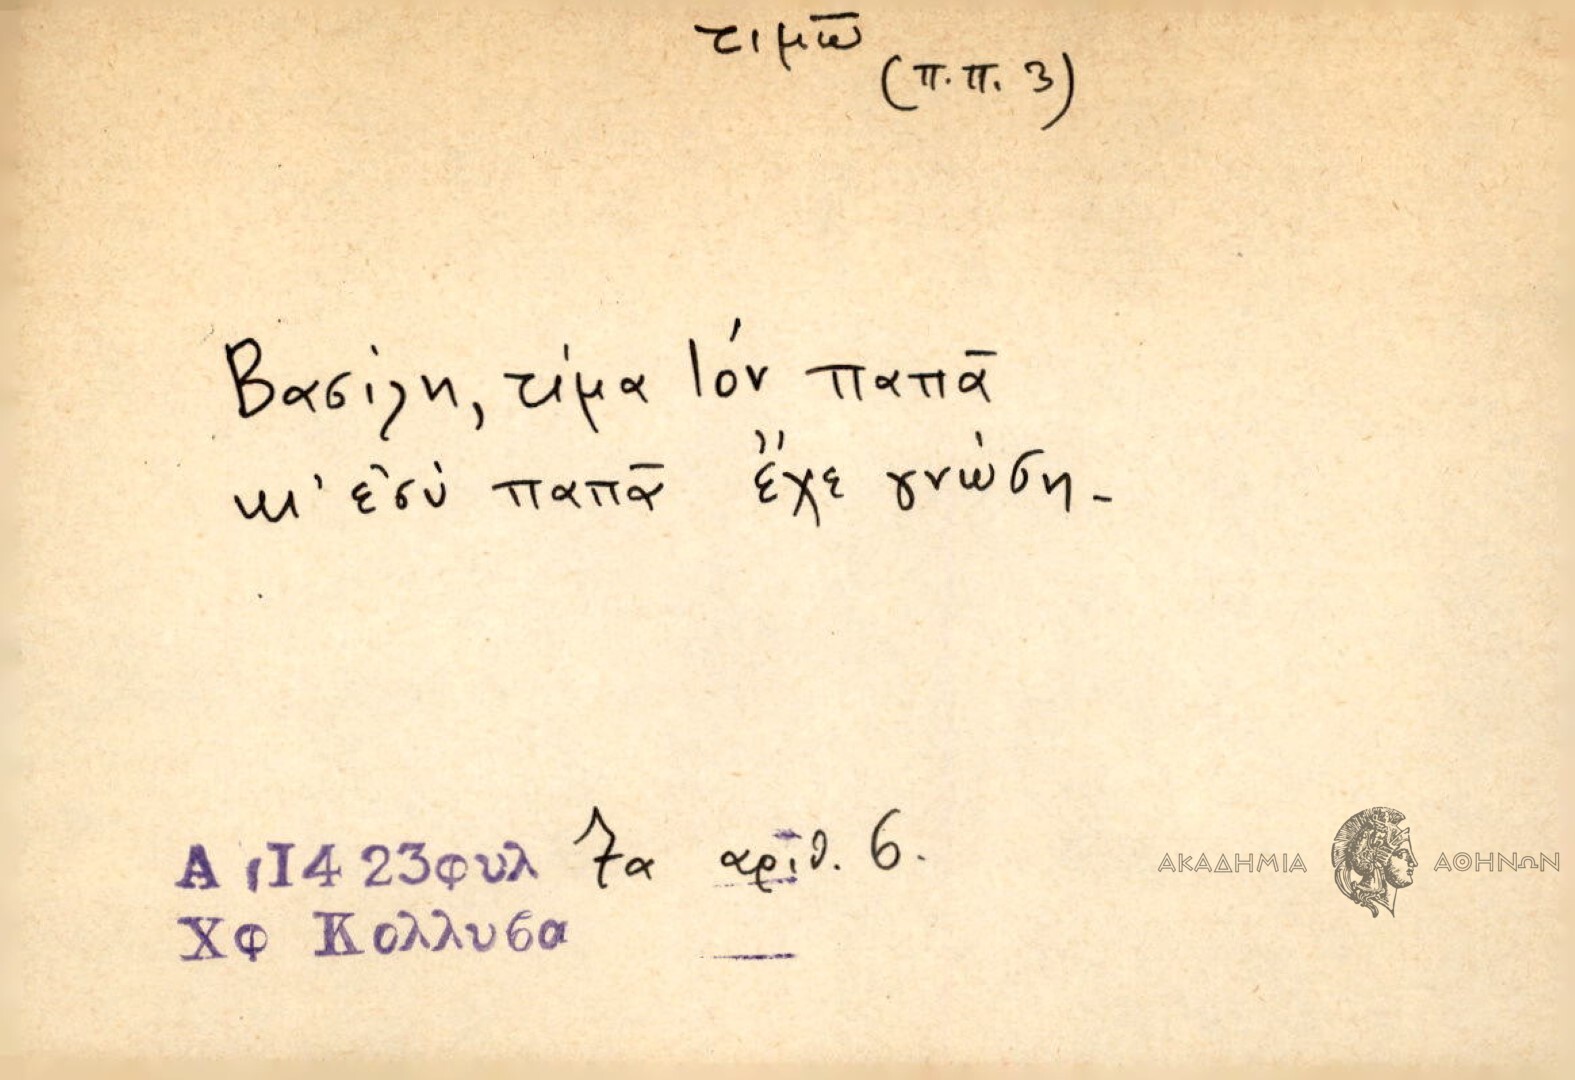 τιμῶ
(π.π. 3)
Βασίλη, τίμα τὸν παπᾶ
κι' ἐσὺ παπᾶ ἔχε γνώση.
Α ,1423 φυλ 7α αριθ. 6.
Χφ Κολλυβα
ΑΚΑΔΗΜΙΑ ΑΘΗΝΩΝ